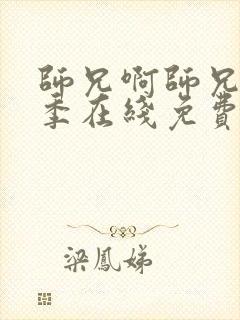 師兄啊師兄
季在綫免費
梁鳳娣